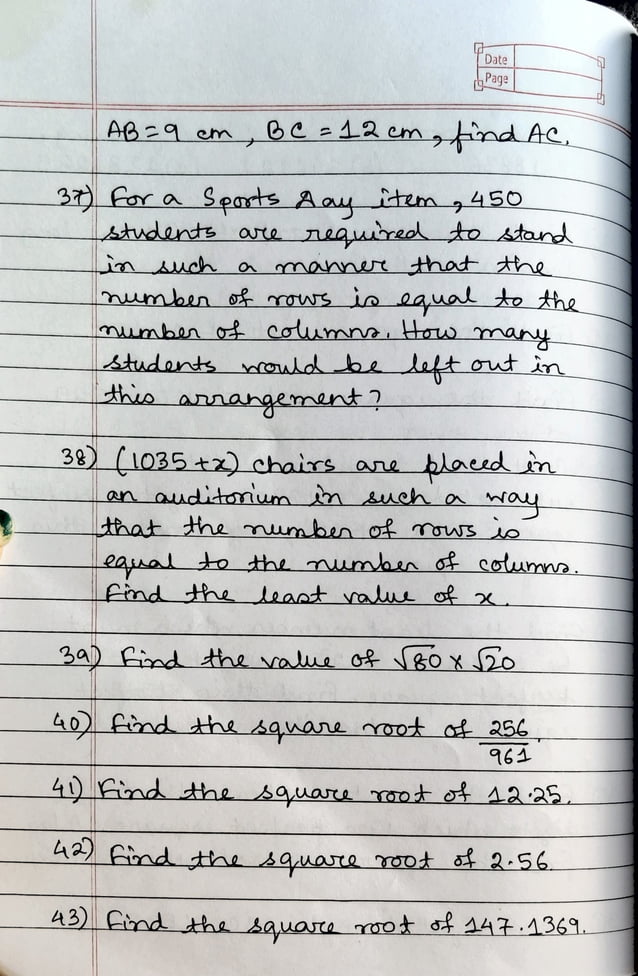 Date
Page
AB = 9 cm, BC = 12 cm, find AC.
37) For a Sports Day item, 450
students are required to stand
in such a manner that the
number of rows is equal to the
number of columns. How many
students would be left out in
this arrangement?
38) (1035 + x) chairs are placed in
an auditorium in such a way
that the number of rows is
equal to the number of columns.
Find the least value of x.
39) Find the value of √80 × √20
40) Find the square root of 256/961.
41) Find the square root of 12.25.
42) Find the square root of 2.56.
43) Find the square root of 147.1369.